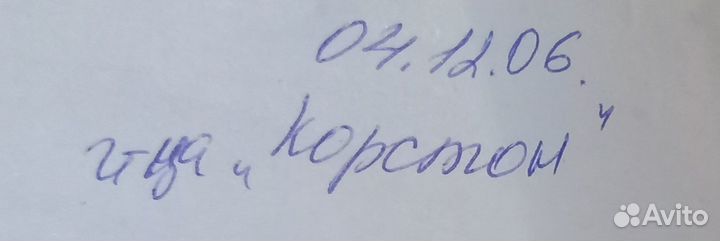 04.12.06.
г-ца „Корстон"
Avito